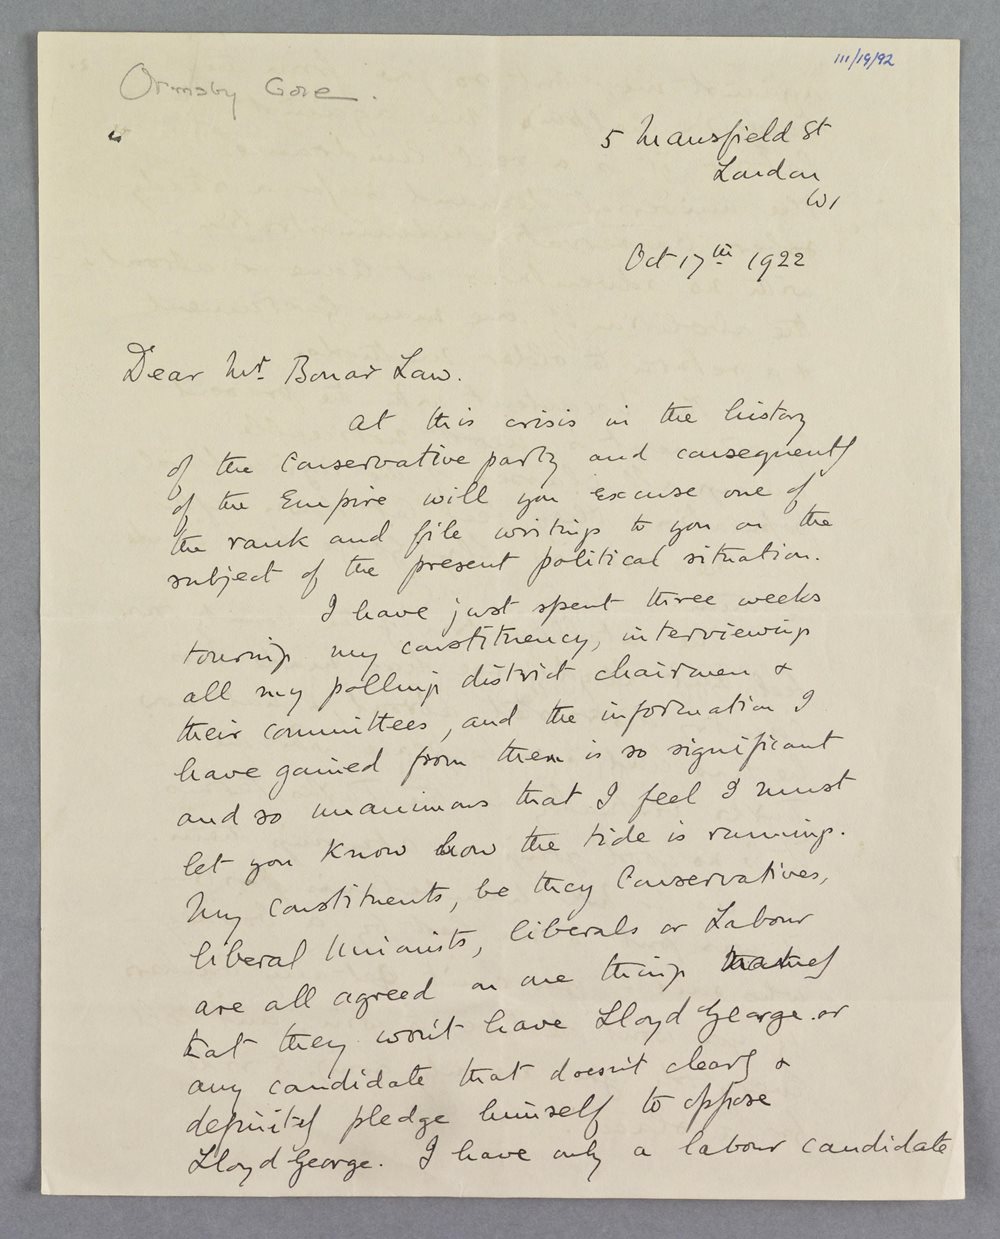 111/19/92
Ormsby Gore.
5 Mansfield St
London
W1
Oct 17th 1922
Dear Mr. Bonar Law.
At this crisis in the history
of the Conservative party and consequently
of the Empire will you excuse one of
the rank and file writing to you on the
subject of the present political situation.
I have just spent three weeks
touring my constituency, interviewing
all my polling district chairmen &
their committees, and the information I
have gained from them is so significant
and so unanimous that I feel I must
let you know how the tide is running.
My constituents, be they Conservatives,
liberal Unionists, liberals or Labour
are all agreed on one thing namely
that they won't have Lloyd George or
any candidate that doesn't clearly &
definitely pledge himself to oppose
Lloyd George. I have only a labour candidate